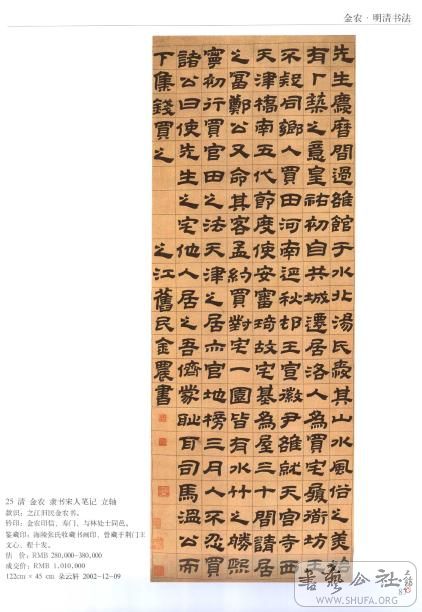 金农·明清书法
先生慶曆間過雒館于水北湯氏愛其山水風俗之美始
有卜築之意皇祐初自共城遷居洛人為買宅履衟坊王
不疑同鄉人買田河南延秋邨王宣徽尹雒就天宮寺西
天津橋南五代節度使安審琦故宅基為屋三十間請居
之富鄭公又命其客孟約買對宅一園皆有水竹勝熙
寧初行買官田之法天津之居亦官地榜三月人不忍買
諸公曰使先生之宅他人居之吾儕蒙恥矣司馬溫公而
下集錢買之 之江舊民金農書
25 清 金农 隶书宋人笔记 立轴
款识：之江旧民金农书。
钤印：金农印信、寿门、与林处士同邑。
鉴藏印：海陵张氏收藏书画印、曾藏于荆门王
文心、程十发。
估 价：RMB 280,000-380,000
成交价：RMB 1,010,000
122cm × 45 cm 朵云轩 2002-12-09
書藝公社
WWW.SHUFA.ORG